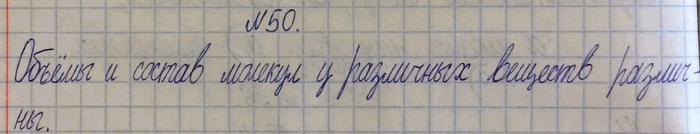 №50.
Объёмы и состав молекул у различных веществ различ-
ны.